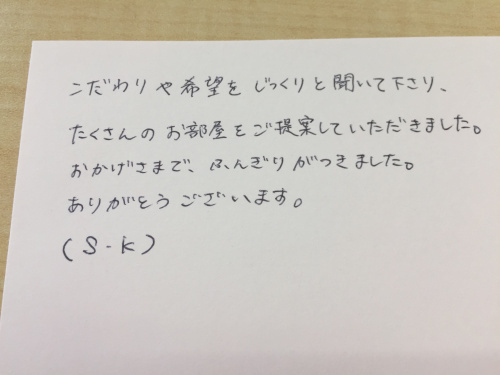 こだわりや希望をじっくりと聞いて下さり、
たくさんのお部屋をご提案していただきました。
おかげさまで、ふんぎりがつきました。
ありがとうございます。
(S-K)